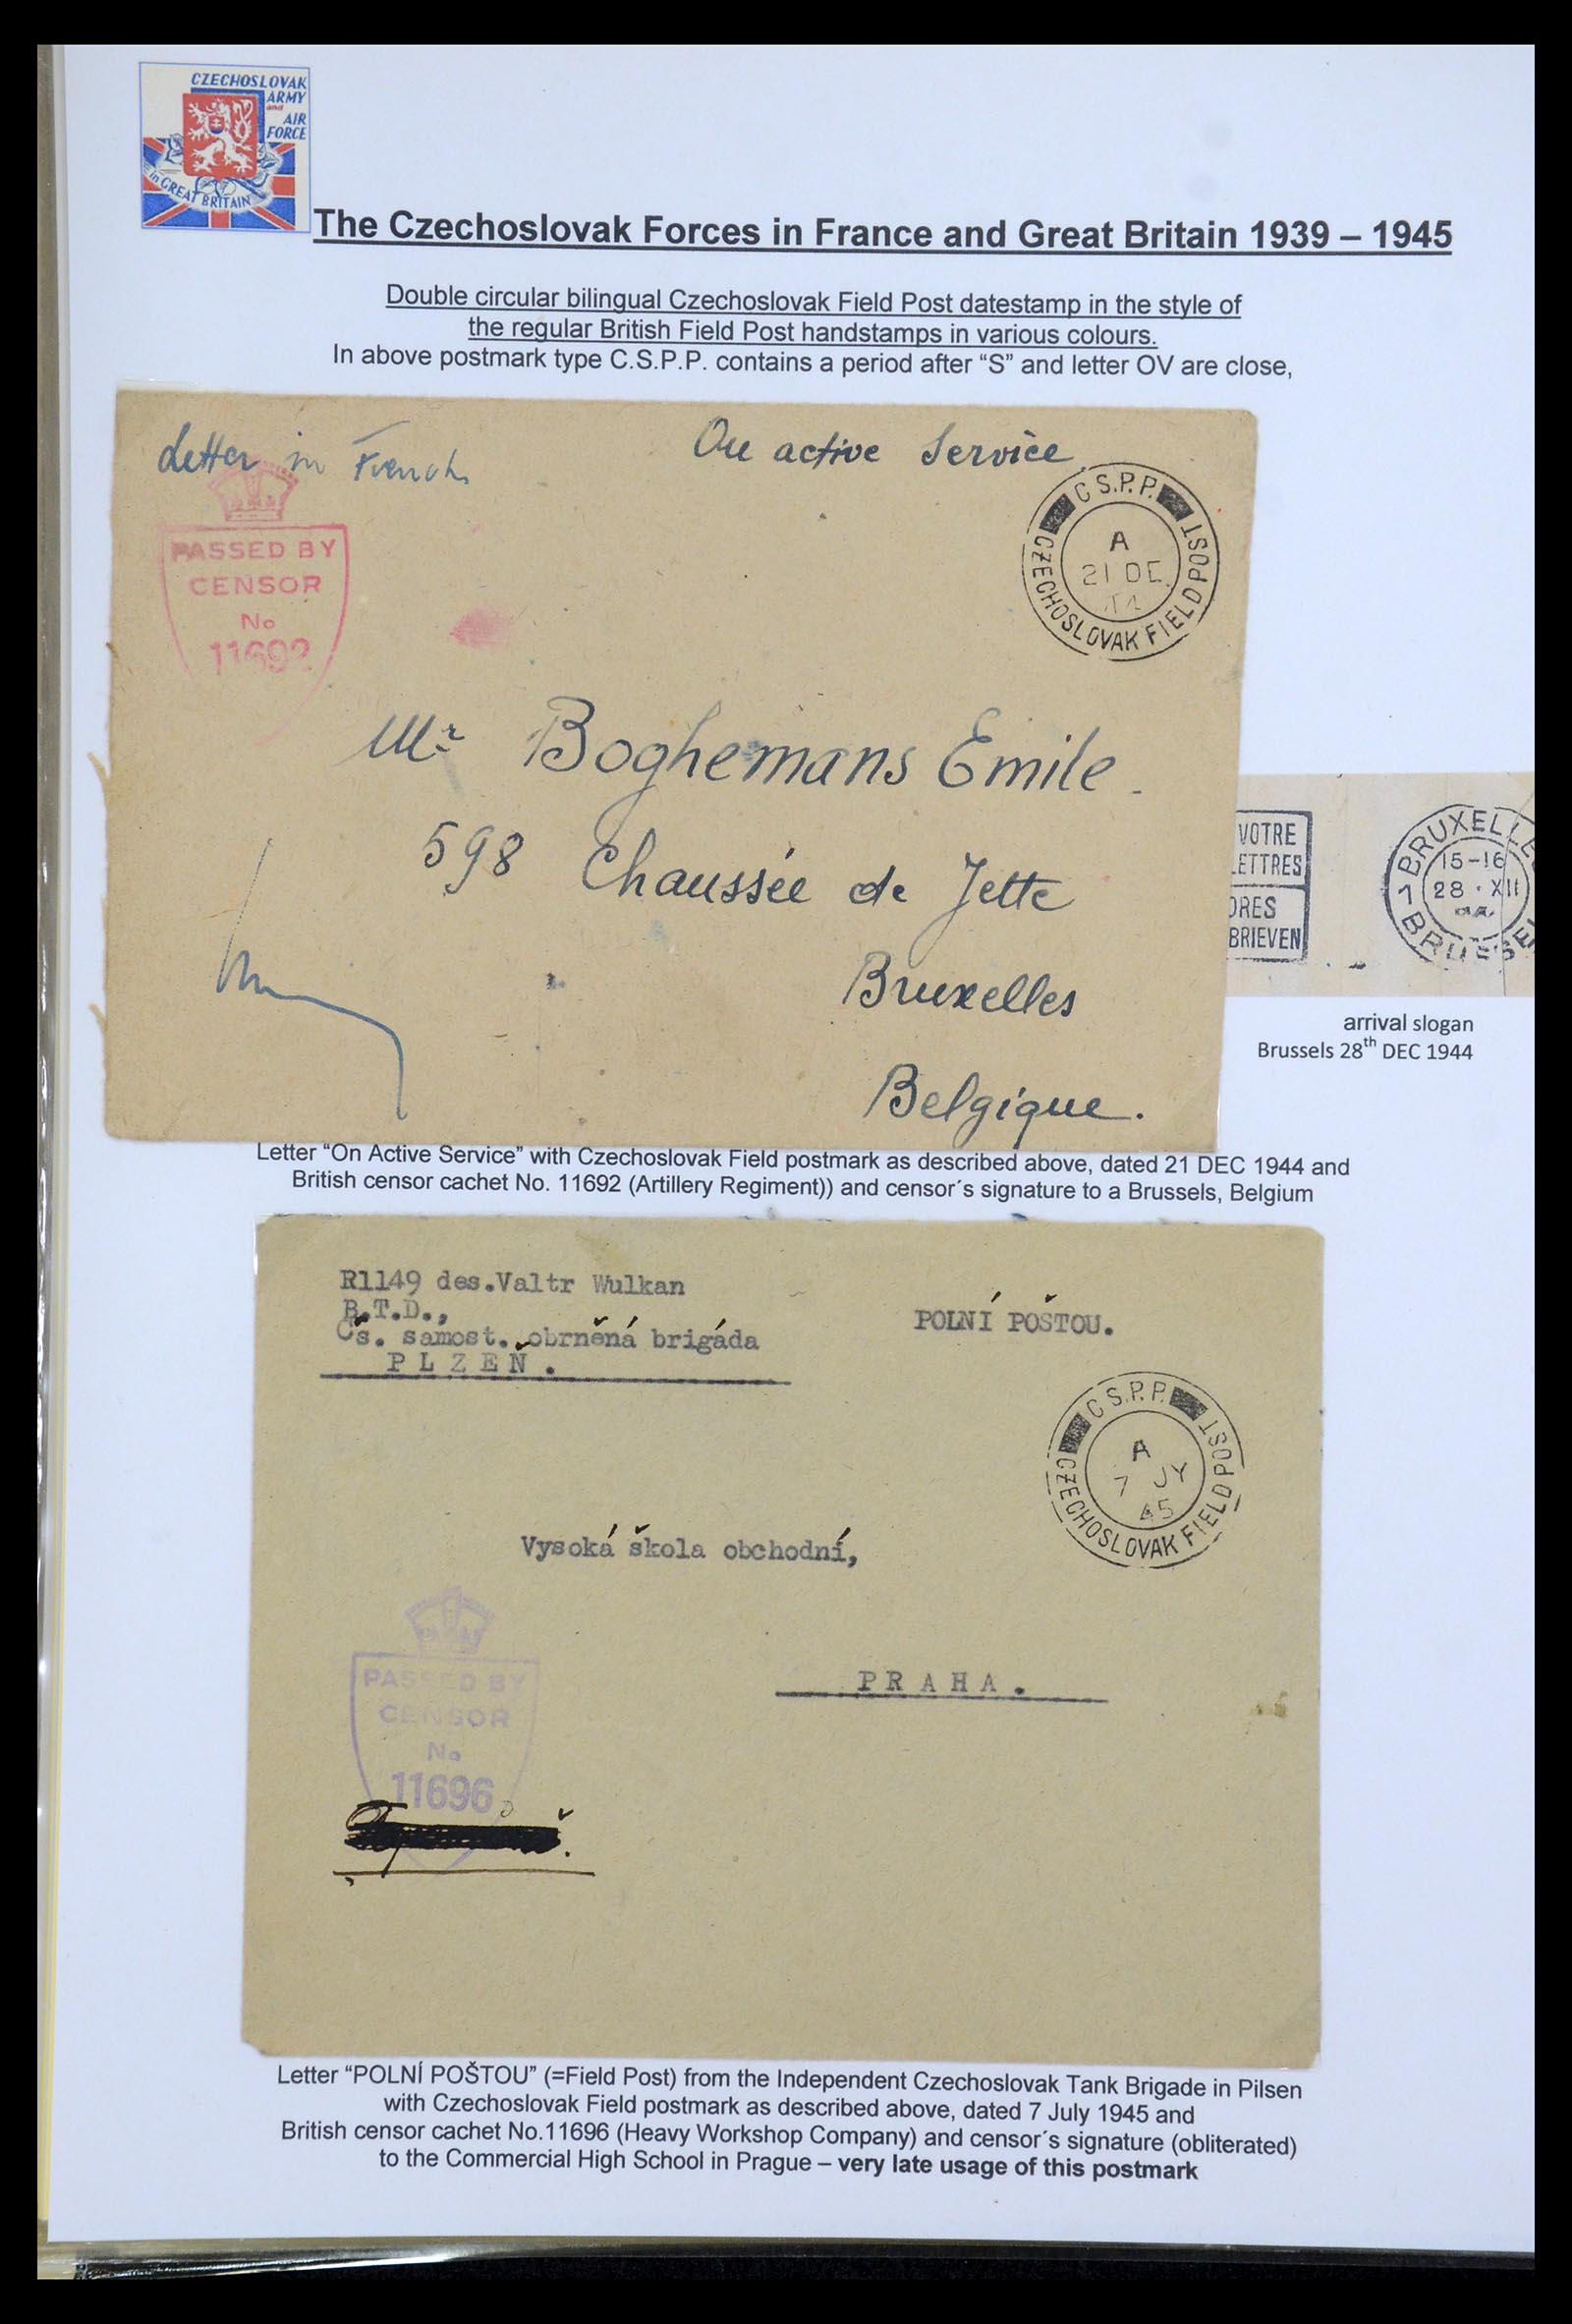 CZECHOSLOVAK
ARMY
and
AIR
FORCE
in GREAT BRITAIN
The Czechoslovak Forces in France and Great Britain 1939 – 1945
Double circular bilingual Czechoslovak Field Post datestamp in the style of
the regular British Field Post handstamps in various colours.
In above postmark type C.S.P.P. contains a period after “S” and letter OV are close,
Letter in French
On active Service
PASSED BY
CENSOR
No
11692
C S.P.P.
A
21 DE
CZECHOSLOVAK FIELD POST
Mr Boghemans Emile
598 Chaussée de Jette
Bruxelles
Belgique.
VOTRE
LETTRES
BRIEVEN
BRUXELLE
15-16
28 · XII
1 1
arrival slogan
Brussels 28th DEC 1944
Letter “On Active Service” with Czechoslovak Field postmark as described above, dated 21 DEC 1944 and
British censor cachet No. 11692 (Artillery Regiment)) and censor´s signature to a Brussels, Belgium
R1149 des.Valtr Wulkan
B.T.D.,
Čs. samost. obrněná brigáda
PLZEŇ.
POLNÍ POŠTOU.
C S.P.P.
A
7 JY
45
CZECHOSLOVAK FIELD POST
Vysoká škola obchodní,
PRAHA.
PASSED BY
CENSOR
No
11696
Letter “POLNÍ POŠTOU” (=Field Post) from the Independent Czechoslovak Tank Brigade in Pilsen
with Czechoslovak Field postmark as described above, dated 7 July 1945 and
British censor cachet No.11696 (Heavy Workshop Company) and censor´s signature (obliterated)
to the Commercial High School in Prague – very late usage of this postmark